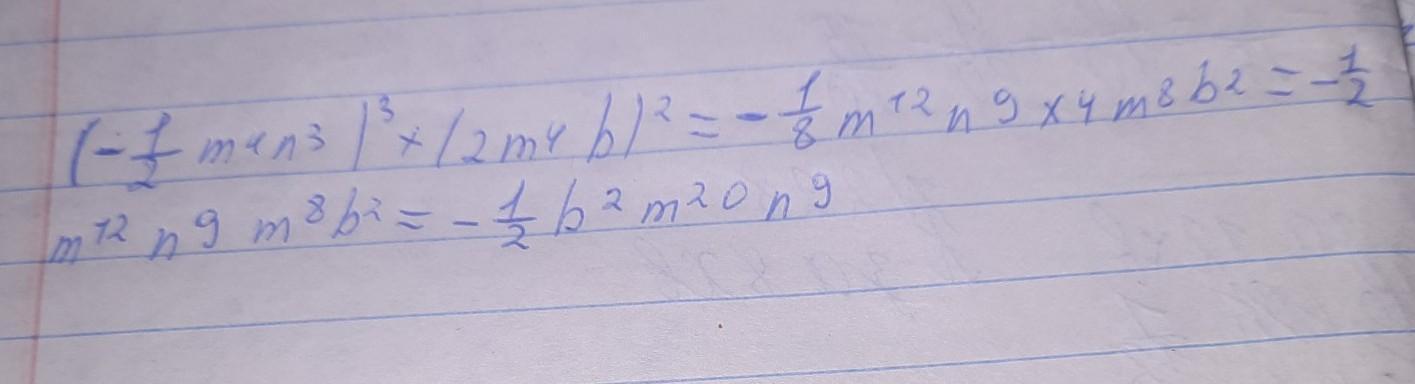 (-1/2 m⁴n³)³ × (2m⁴b)² = -1/8 m¹²n⁹ × 4m⁸b² = -1/2
m¹²n⁹m⁸b² = -1/2 b²m²⁰n⁹